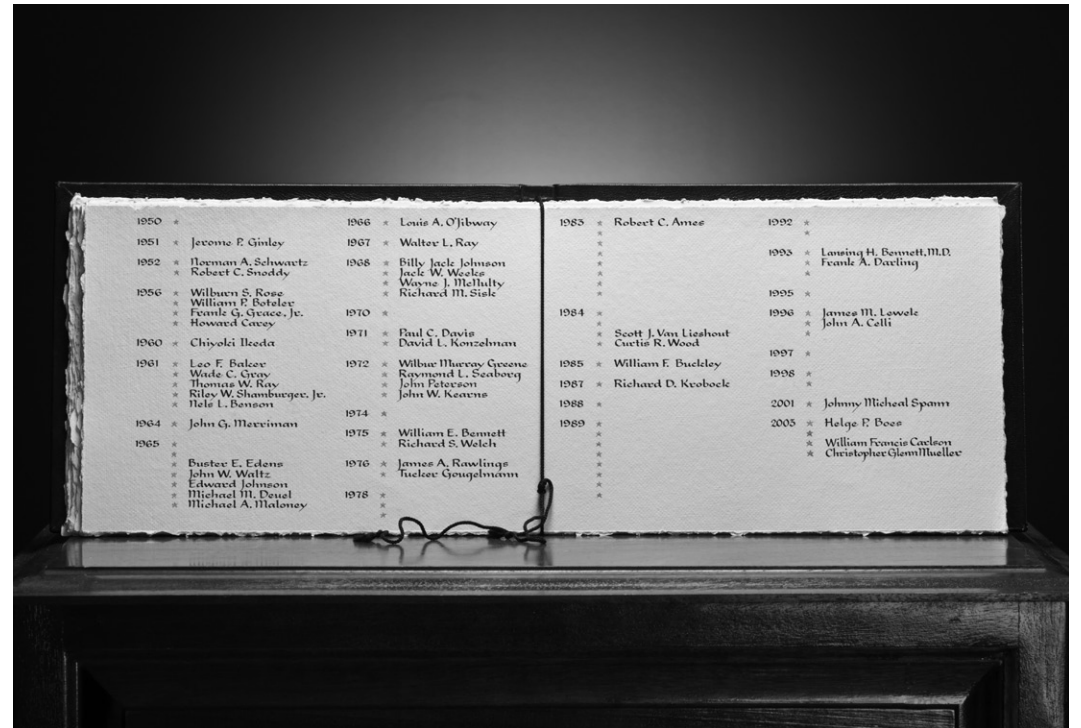 1950 ★
1951 ★ Jerome P. Ginley
1952 ★ Norman A. Schwartz
★ Robert C. Snoddy
1956 ★ Wilburn S. Rose
★ William P. Boteler
★ Frank G. Grace, Jr.
★ Howard Carey
1960 ★ Chiyoki Ikeda
1961 ★ Leo F. Baker
★ Wade C. Gray
★ Thomas W. Ray
★ Riley W. Shamburger, Jr.
★ Nels L. Benson
1964 ★ John G. Merriman
1965 ★
★
★ Buster E. Edens
★ John W. Waltz
★ Edward Johnson
★ Michael M. Deuel
★ Michael A. Maloney
1966 ★ Louis A. O'Jibway
1967 ★ Walter L. Ray
1968 ★ Billy Jack Johnson
★ Jack W. Weeks
★ Wayne J. McNulty
★ Richard M. Sisk
1970 ★
1971 ★ Paul C. Davis
★ David L. Konzelman
1972 ★ Wilbur Murray Greene
★ Raymond L. Seaborg
★ John Peterson
★ John W. Kearns
1974 ★
1975 ★ William E. Bennett
★ Richard S. Welch
1976 ★ James A. Rawlings
★ Tucker Gougelmann
1978 ★
★
★
1983 ★ Robert C. Ames
★
★
★
★
★
★
★
1984 ★
★
★ Scott J. Van Lieshout
★ Curtis R. Wood
1985 ★ William F. Buckley
1987 ★ Richard D. Krobock
1988 ★
1989 ★
★
★
★
★
★
★
★
1992 ★
★
1993 ★ Lansing H. Bennett, M.D.
★ Frank A. Darling
★
1995 ★
1996 ★ James M. Lewek
★ John A. Celli
★
1997 ★
1998 ★
★
2001 ★ Johnny Micheal Spann
2003 ★ Helge P. Boes
★
★ William Francis Carlson
★ Christopher Glenn Mueller